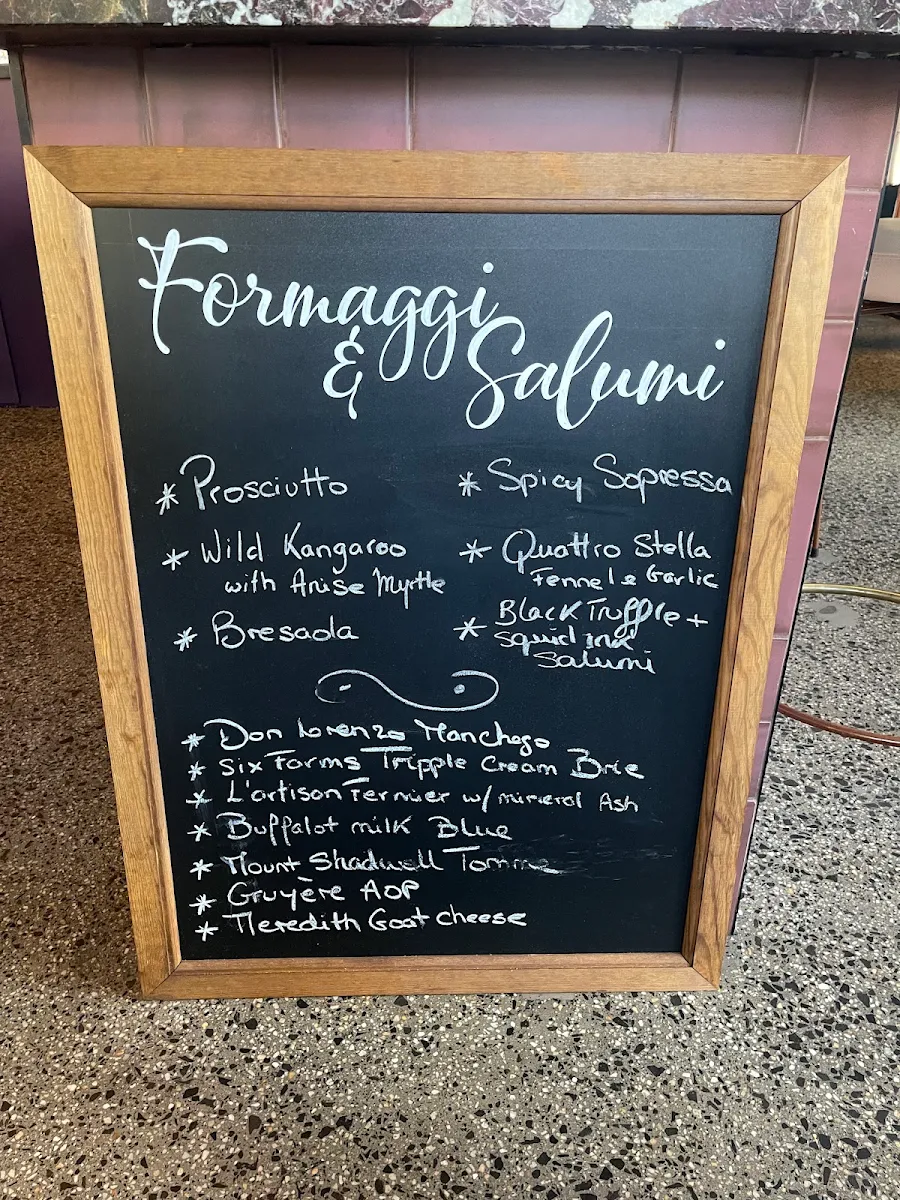 Formaggi
& Salumi
* Prosciutto
* Wild Kangaroo
with Anise Myrtle
* Bresaola
* Spicy Sopressa
* Quattro Stella
Fennel & Garlic
* Black Truffle +
squid ink
Salumi
* Don Lorenzo Manchego
* Six Farms Tripple Cream Brie
* L'artisan Fermier w/ mineral Ash
* Buffalot milk Blue
* Mount Shadwell Tomme
* Gruyère AOP
* Meredith Goat cheese